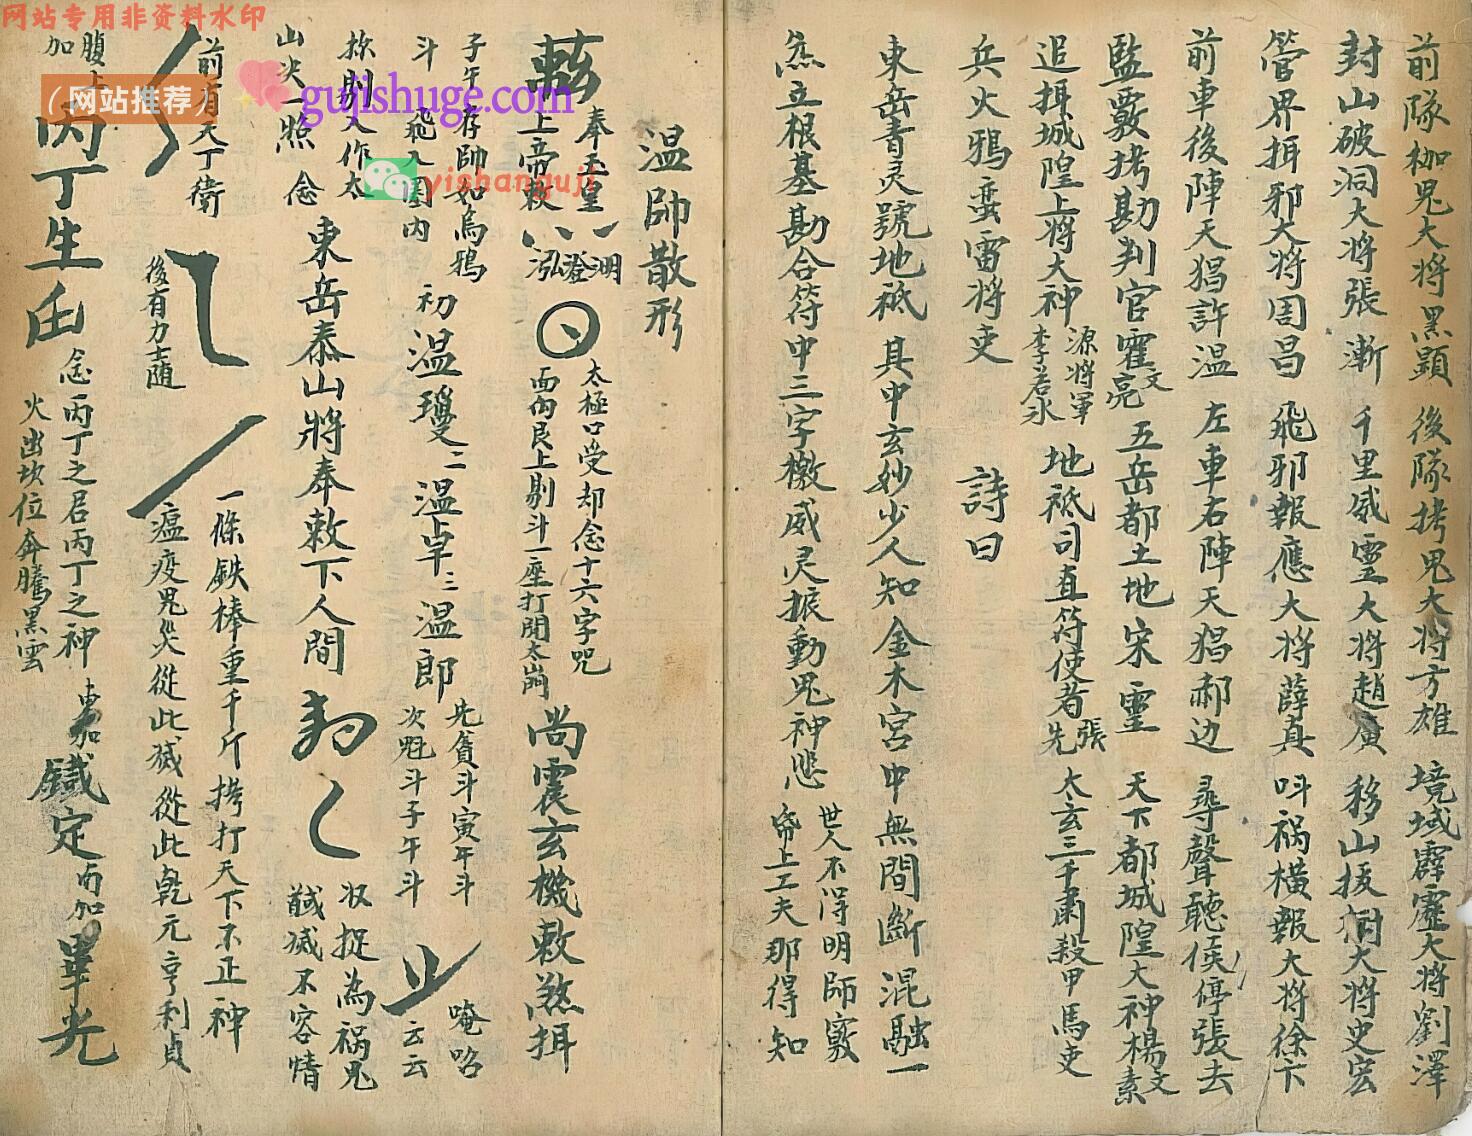 前隊枷鬼大将黑顯　後隊拷鬼大将方雄　境域霹靂大将劉澤
封山破洞大将張漸　千里威靈大将趙廣　移山拔樹大将史宏
管界捉邪大将周昌　飛邪報應大将薛真　呌祸横報大将徐卞
前車後陣天猖許温　左車右陣天猖郝边　尋聲聽侯停張去
監藪拷勘判官霍文亮　五岳都土地宋靈　天下都城隍大神楊文素
追捉城隍上将大神　源将軍　李若水　地祇司直符使者張先　太玄三千肅殺甲馬吏
兵火鴉蛮雷将吏　詩曰
東岳青灵號地祇　其中玄妙少人知　金木宮中無間斷　混融一
炁立根基　勘合符中三字檄　威灵振動鬼神悲　世人不得明師竅　帝上工夫那得知
温帥散形
奉玉皇上帝敕　泓澄渊　太極口受却念十六字咒　面向艮上剔斗一座打開太崗　尚震玄機敕煞捉
子午存帥如烏鴉　斗飛入圈内　初温瓊　二温卓　三温郎　先貪斗寅午斗　次魁斗子午斗　唵吽云云
捺剔人作太山尖一照念　東岳泰山將奉敕下人間　収捉為祸鬼　馘滅不容情
前有天丁衛　後有力士随　一條鉄棒重千斤　拷打天下不正神　瘟疫鬼炁從此滅　從此乾元亨利貞
腹上加　丙丁生　念丙丁之君丙丁之神　火出坎位奔騰黑雲　東加鐵定　西加畢光
网站专用非资料水印
（网站推荐）
gujishuge.com
yishanguji